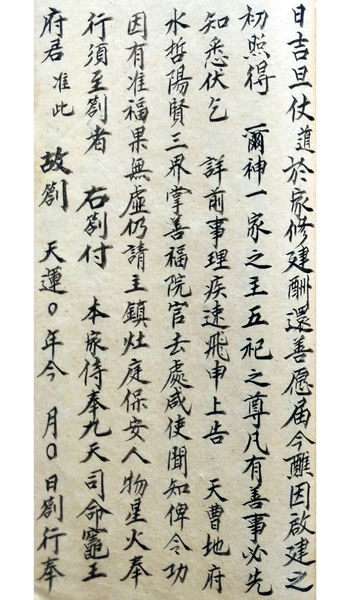 日吉旦仗道於家修建酬還善愿届今醮因啟建之
初照得 爾神一家之王五祀之尊凡有善事必先
知悉伏乞 詳前事理疾速飛申上告 天曹地府
水哲陽賢三界掌善福院官去處咸使聞知俾令功
因有准福果無虛仍請主鎮灶庭保安人物星火奉
行須至劄者 右劄付 本家侍奉九天司命竈王
府君 准此 故劄 天運〇年今 月〇日劄行奉